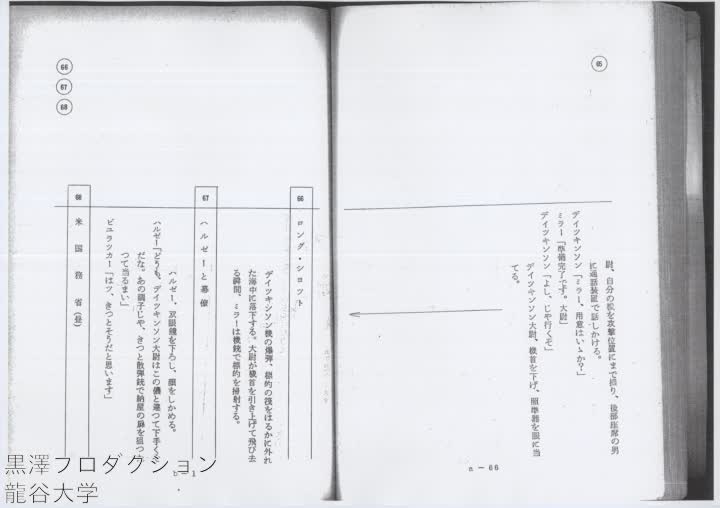 65
尉、自分の機を攻撃位置にまで操り、後部座席の男
に通話装置で話しかける。
デイツキンソン「ミラー、用意はいゝか?」
ミラー「準備完了です。大尉」
デイツキンソン「よし、じや行くぞ」
デイツキンソン大尉、機首を下げ、照準器を眼に当
てる。
a−66
66
67
68
66
ロング・シヨツト
デイツキンソン機の爆弾、標的の筏をはるかに外れ
た海中に落下する。大尉が機首を引き上げて飛び去
る瞬間、ミラーは機銃で標的を掃射する。
67
ハルゼーと幕僚
ハルゼー、双眼鏡を下ろし、顔をしかめる。
ハルゼー「どうも、デイツキンソン大尉はこの僕と違つて下手くそ
だな。あの調子じや、きつと散弾銃で納屋の扉を狙つ
つて当るまい」
ビユラツカー「はツ、きつとそうだと思います」
68
米国務省(昼)
b−1
黒澤プロダクション
龍谷大学